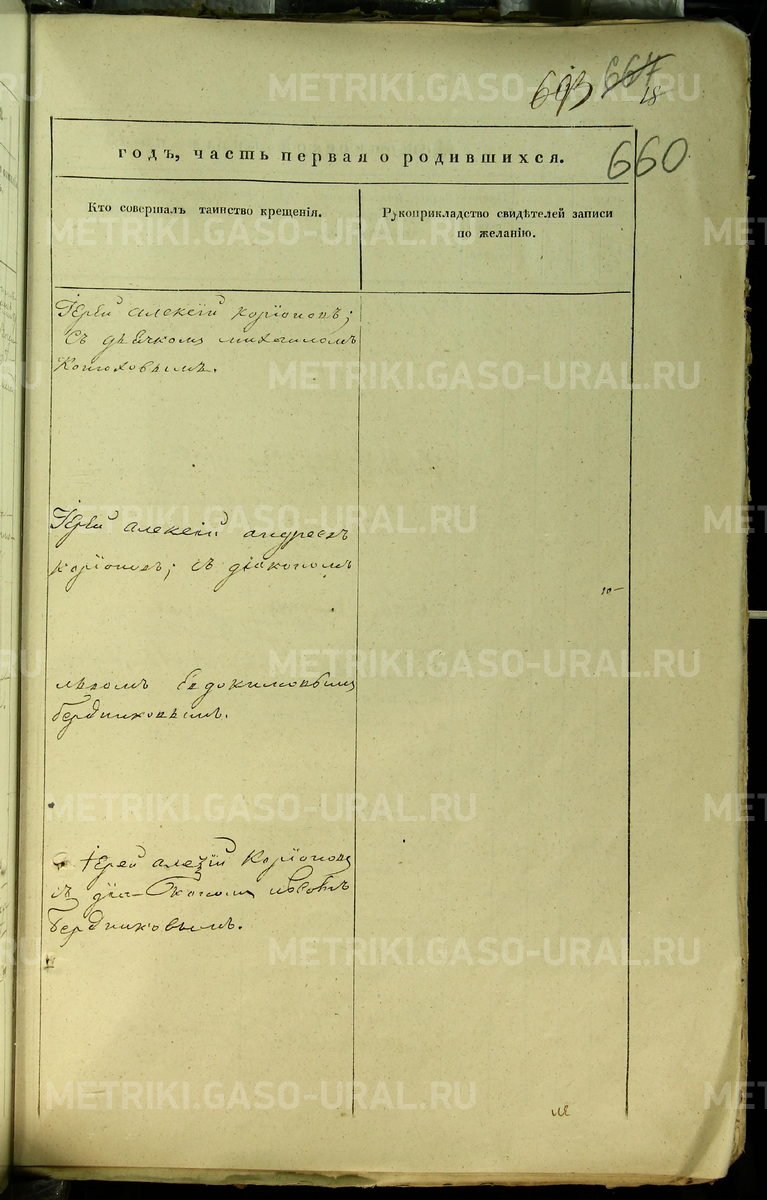 693 667
18
660
годъ, часть первая о родившихся.
Кто совершалъ таинство крещенія.
Рукоприкладство свидѣтелей записи
по желанію.
Іерей алексій коріоновъ;
Съ дьячкомъ михаиломъ
Конюховымъ.
Іерей алексій андреевъ
коріоновъ; съ діакономъ
10
львомъ Евдокимовымъ
Бердниковымъ.
Іерей алексій Коріоновъ
съ діакономъ львомъ
Бердниковымъ.
METRIKI.GASO-URAL.RU